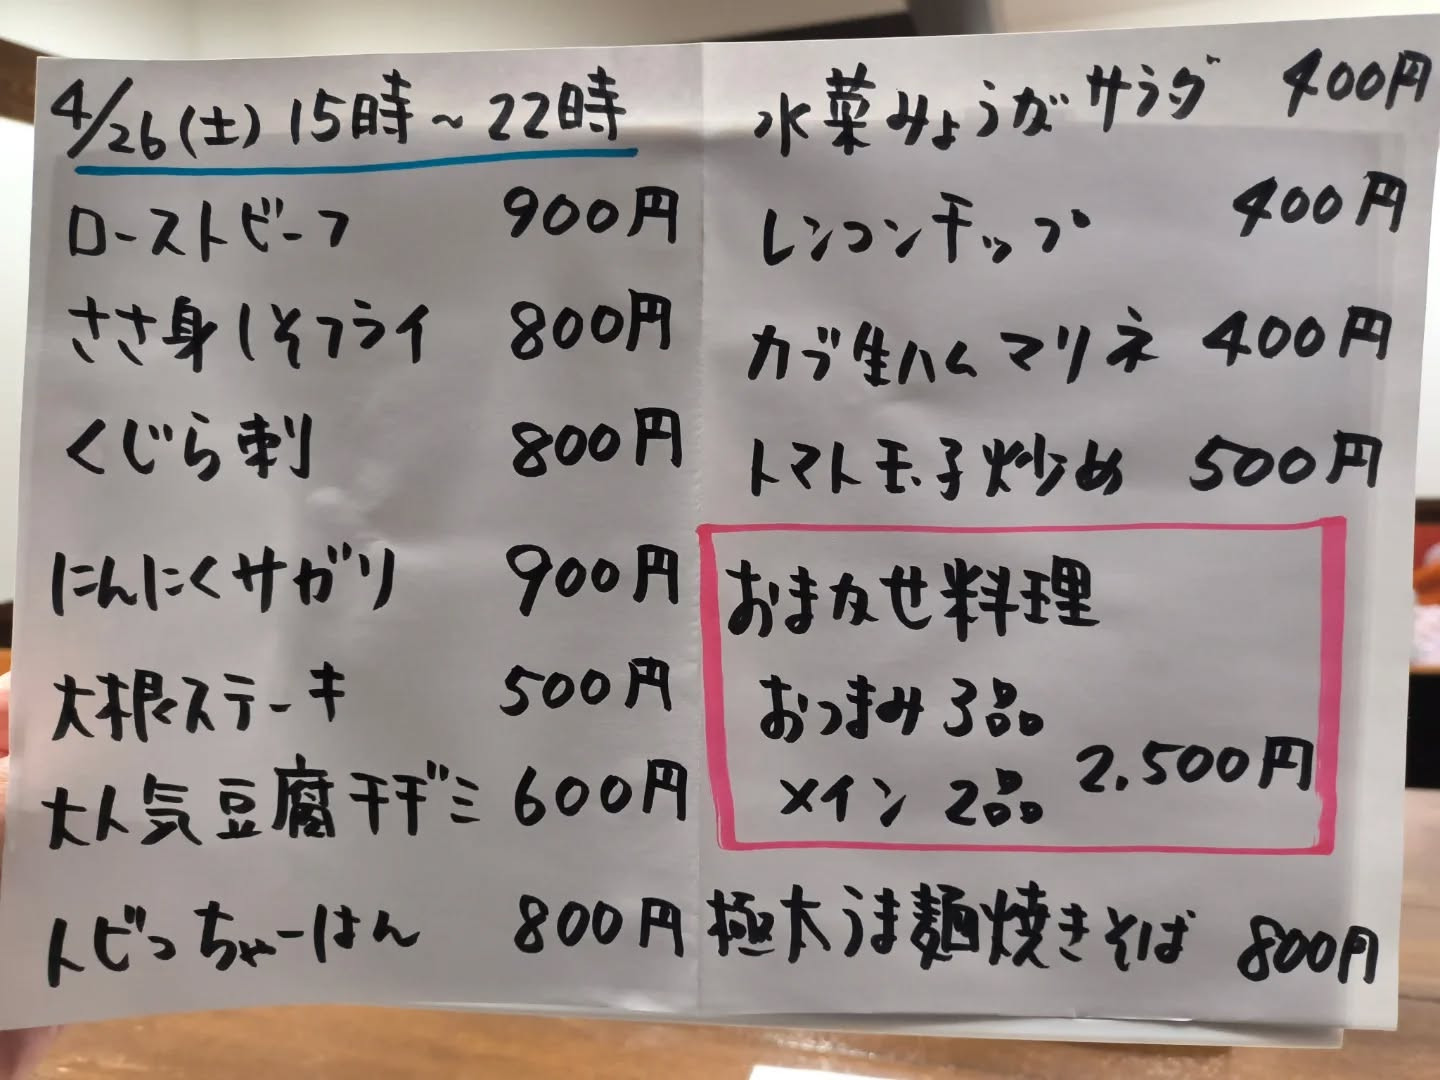 4/26(土) 15時~22時
ローストビーフ 900円
ささ身しそフライ 800円
くじら刺 800円
にんにくサガリ 900円
大根ステーキ 500円
大人気豆腐チヂミ 600円
トビっちゃーはん 800円
水菜みょうがサラダ 400円
レンコンチップ 400円
カブ生ハムマリネ 400円
トマト玉子炒め 500円
おまかせ料理
おつまみ3品
メイン2品 2,500円
極太うま麺焼きそば 800円